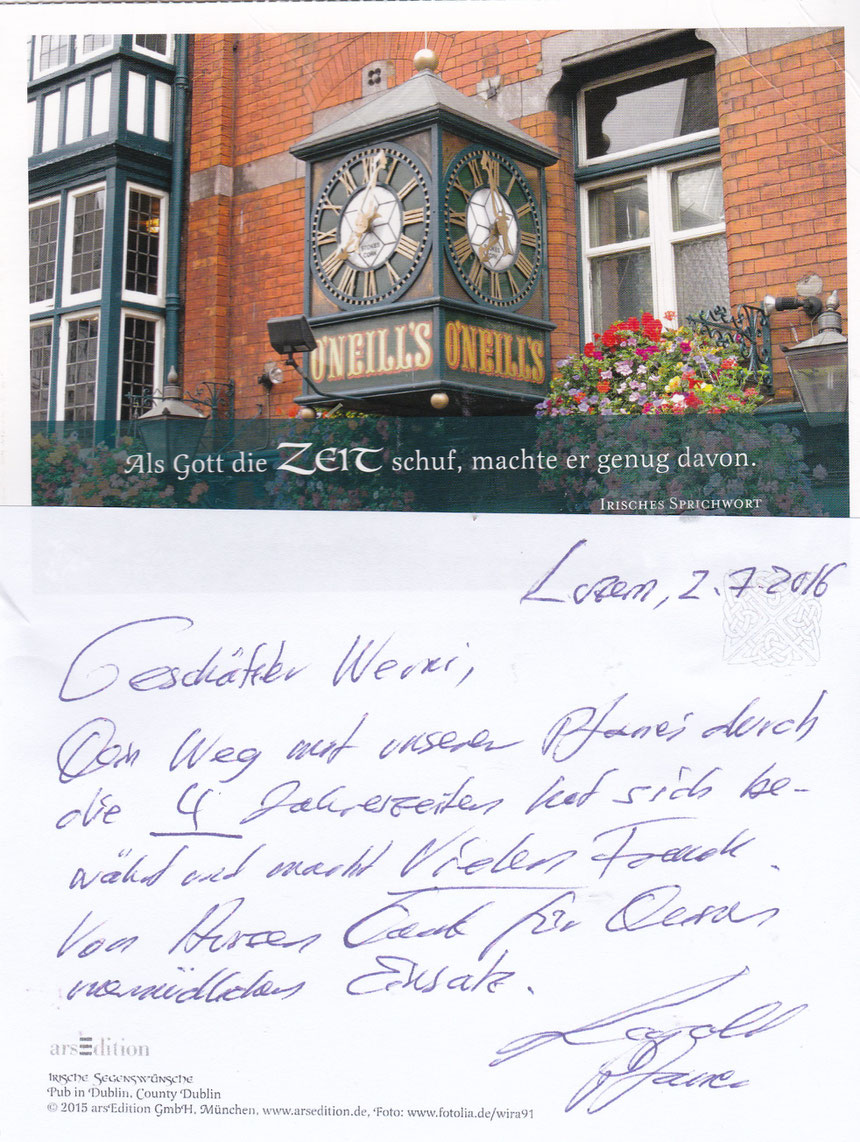 STOKES
CORK
O'NEILL'S O'NEILL'S
Als Gott die ZEIT schuf, machte er genug davon.
IRISCHES SPRICHWORT
Luzern, 2.7.2016
Geschätzter Werni,
Dein Weg mit unserer Pfarrei durch
die 4 Jahreszeiten hat sich be-
währt und macht Vielen Freude.
Von Herzen Dank für Deinen
unermüdlichen Einsatz.
arsEdition
IRISCHE SEGENSWÜNSCHE
Pub in Dublin, County Dublin
© 2015 arsEdition GmbH, München, www.arsedition.de, Foto: www.fotolia.de/wira91